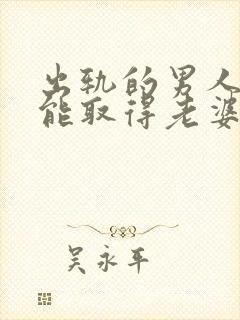 出轨的男人
能取得老婆
吴永平